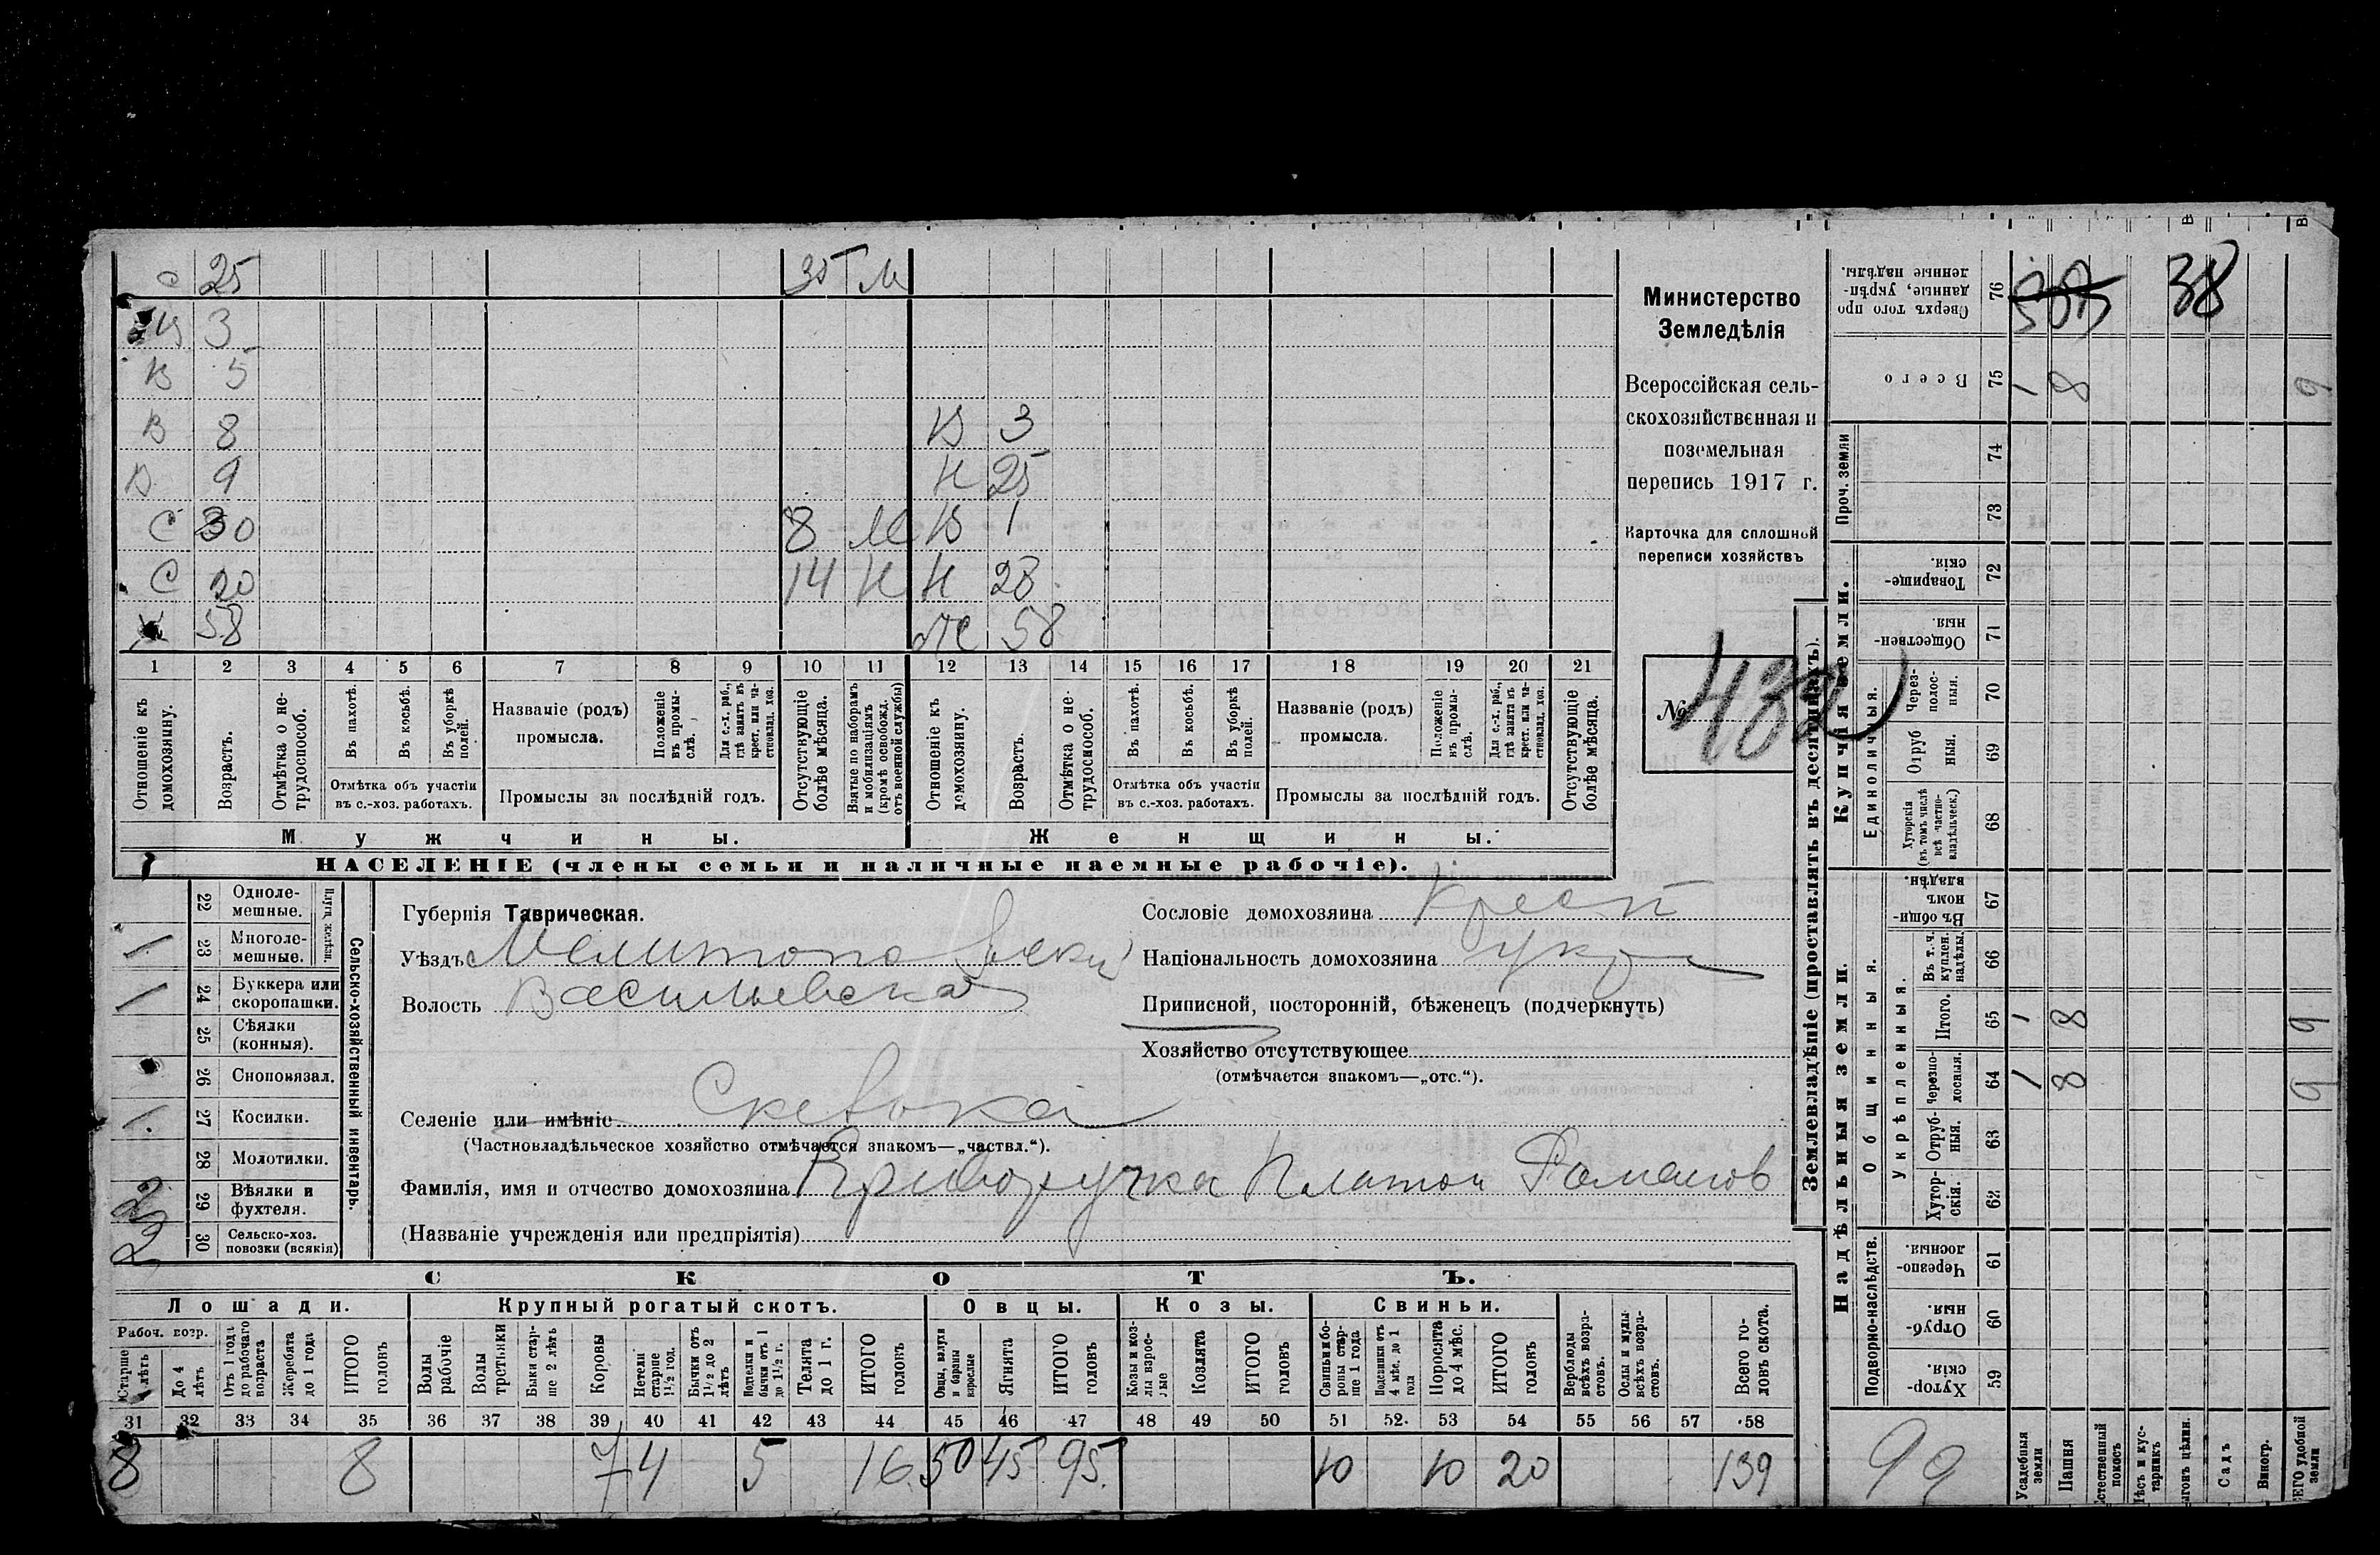 с 25 35 м
в 3
в 5
в 8 в 3
в 9 н 25
с 30 8 м в 1
с 20 14 н н 28
х 58 ж 58
1 2 3 4 5 6 7 8 9 10 11 12 13 14 15 16 17 18 19 20 21
Отношеніе къ домохозяину.
Возрастъ.
Отмѣтка о не-трудоспособ.
Въ пахотѣ.
Въ косьбѣ.
Въ уборкѣ полей.
Отмѣтка объ участіи въ с.-хоз. работахъ.
Названіе (родъ) промысла.
Положеніе въ промы-слѣ.
Для с.-х. раб., гдѣ занятъ въ крест. или ча-стновлад. хоз.
Промыслы за послѣдній годъ.
Отсутствующіе болѣе мѣсяца.
Взятые по наборамъ и мобилизаціямъ (кромѣ освобожд. отъ военной службы)
Отношеніе къ домохозяину.
Возрастъ.
Отмѣтка о не-трудоспособ.
Въ пахотѣ.
Въ косьбѣ.
Въ уборкѣ полей.
Отмѣтка объ участіи въ с.-хоз. работахъ.
Названіе (родъ) промысла.
Положеніе въ промы-слѣ.
Для с.-х. раб., гдѣ занята въ крест. или ча-стновлад. хоз.
Промыслы за послѣдній годъ.
Отсутствующіе болѣе мѣсяца.
Мужчины. Женщины.
НАСЕЛЕНІЕ (члены семьи и наличные наемные рабочіе).
Министерство
Земледѣлія
Всероссійская сель-
скохозяйственная и
поземельная
перепись 1917 г.
Карточка для сплошной
переписи хозяйствъ
№ 432
22 Одноле-мешные.
23 Многоле-мешные. 1
Плуги желѣзн.
24 Буккера или скоропашки. 1
25 Сѣялки (конныя).
26 Сноповязал.
27 Косилки. 1
28 Молотилки.
29 Вѣялки и фухтеля. 2
30 Сельско-хоз. повозки (всякія) 2
Сельско-хозяйственный инвентарь.
Губернія Таврическая.
Уѣздъ Мелитопольскій
Волость Васильевская
Сословіе домохозяина Крест
Національность домохозяина укр
Приписной, посторонній, бѣженецъ (подчеркнуть)
Хозяйство отсутствующее
(отмѣчается знакомъ—„отс.“).
Селеніе или имѣніе Скелька
(Частновладѣльческое хозяйство отмѣчается знакомъ—„частвл.“).
Фамилія, имя и отчество домохозяина Криворучка Платон Романов
(Названіе учрежденія или предпріятія)
СКОТЪ.
Лошади. Крупный рогатый скотъ. Овцы. Козы. Свиньи.
Рабоч. возр.
Старше 4 лѣтъ
До 4 лѣтъ
Отъ 1 года до рабочаго возраста
Жеребята до 1 года
ИТОГО головъ
Волы рабочіе
Волы третьяки
Быки стар-ше 2 лѣтъ
Коровы
Нетели старше 1½ год.
Бычки отъ 1½ до 2 лѣтъ
Подтелки и бычки отъ 1 до 1½ г.
Телята до 1 г.
ИТОГО головъ
Овцы, валухи и бараны взрослые
Ягнята
ИТОГО головъ
Козы и коз-лы взрос-лые
Козлята
ИТОГО головъ
Свиньи и бо-ровы стар-ше 1 года
Подсвинки отъ 4 мѣс. до 1 года
Поросята до 4 мѣс.
ИТОГО головъ
Верблюды всѣхъ возра-стовъ.
Ослы и мулы всѣхъ возра-стовъ.
Всего го-ловъ скота.
31 32 33 34 35 36 37 38 39 40 41 42 43 44 45 46 47 48 49 50 51 52 53 54 55 56 57 58
8 8 7 4 5 16 50 45 95 10 10 20 139
Землевладѣніе (проставлять въ десятинахъ).
Купчія земли.
Надѣльныя земли.
Проч. земли
Единоличныя.
Общинныя.
Укрѣпленныя.
Подворно-наслѣдств.
Сверхъ того про данные, укрѣп-ленные надѣлы. 76 38
Всего 75 1 8 9
74
73
Товарище-скія. 72
Обществен-ныя. 71
Через-полос-ныя. 70
Отруб ныя. 69
Хуторскія (въ томъ числѣ всѣ частно-владѣльческ.) 68
Въ общи-номъ владѣн. 67
Въ т. ч. куплен. надѣлы. 66
Итого. 65 1 8 9
Черезпо-лосныя. 64 1 8 9
Отруб-ныя. 63
Хутор-скія. 62
Черезпо-лосныя. 61
Отруб-ныя. 60
Хутор-скія. 59
99
Усадебныя земли
Пашня
Естественный покосъ
Лѣсъ и кус-тарникъ
Выгонъ цѣлин.
Садъ
Виногр.
ВСЕГО удобной земли